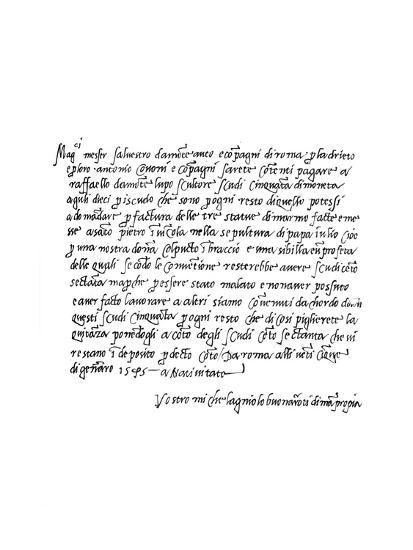 Mag.ci messer salvestro da mōte auto e cōpagni di roma p la drieto
e ploro antonio covoni e cōpagni sarete cōteti pagare a
raffaello da mōte lupo scultore scudi cinquāta di moneta
a guli dieci p iscudo che sono p ogni resto di quello potessi
adomādare p factura delle tre statue di marmo fatte e me
sse a sāto pietro i vīcola nella sepultura di papa iulio cioe
p una nostra dōna col pucto i braccio e una sibilla e ū profeta
delle quali secōdo le covētione resterebbe avere scudi cēto
sectāta ma pche p essere stato malato e no n aver possuto
e aver facto lavorare a altri siamo convenuti da chordo
questi scudi cinquāta p ogni resto che di cosi piglierete la
quitāza ponēdogli a cōto degli scudi cēto sectanta che vi
restano i deposito p decto cōto Da roma alli vēti cīque
di gennaro 1545 — a Nativitate
Vostro michelagniolo buonaroti di mā propia